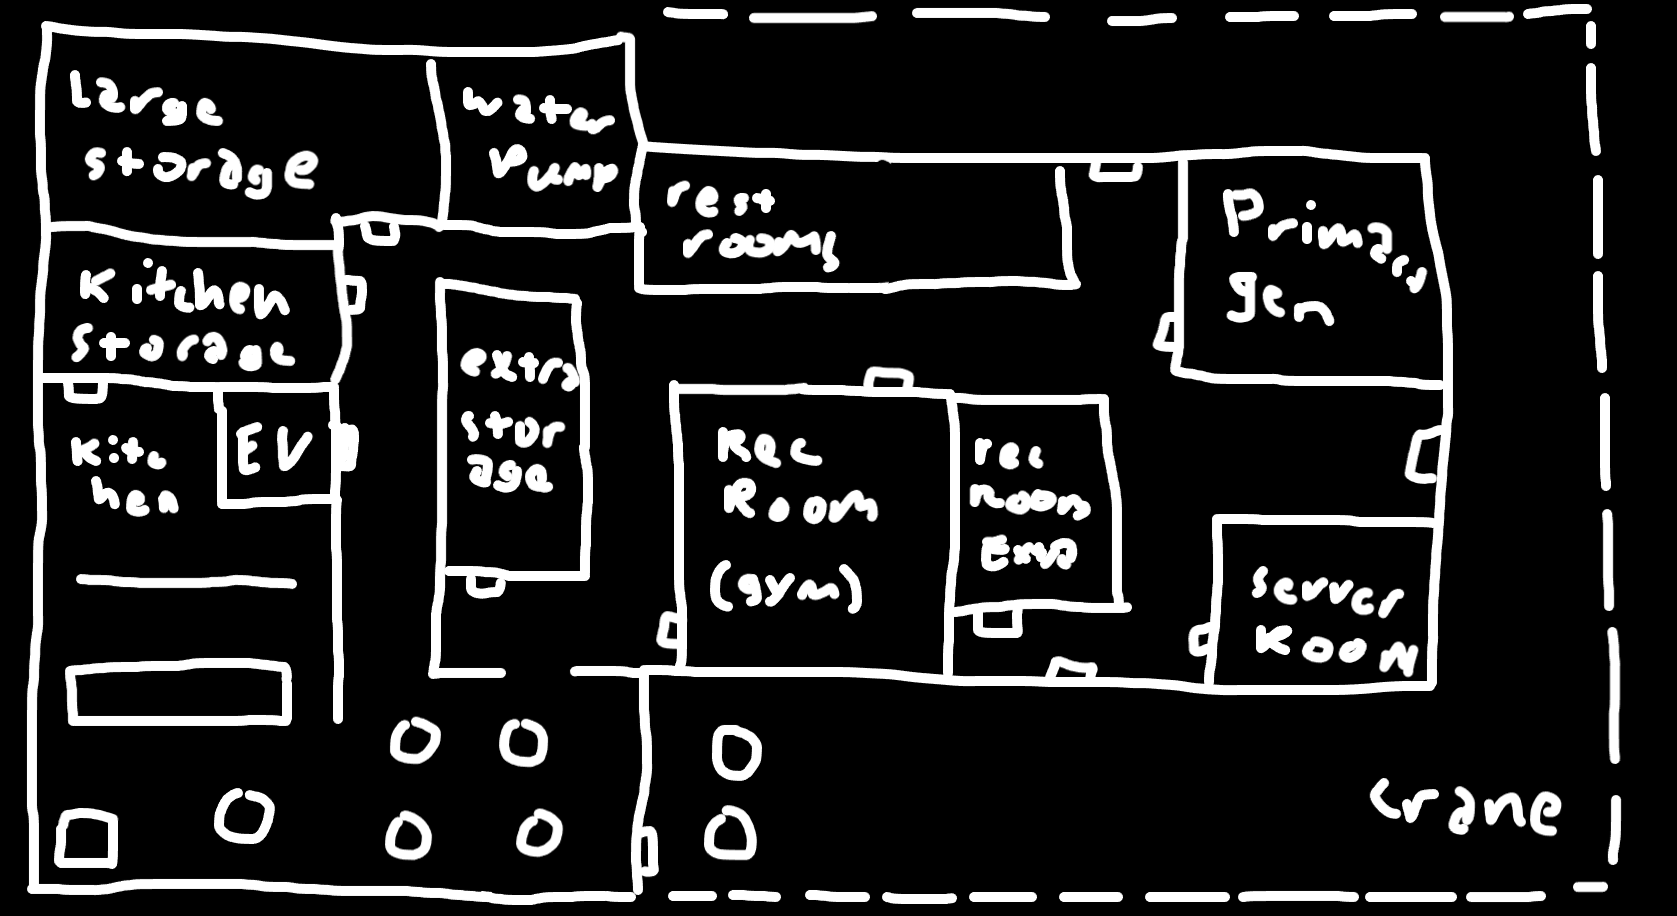 Large
storage
water
pump
rest
rooms
Primary
gen
Kitchen
storage
extra
stor
age
Kitc
hen
EV
Rec
Room
(gym)
rec
room
Extra
server
Room
crane